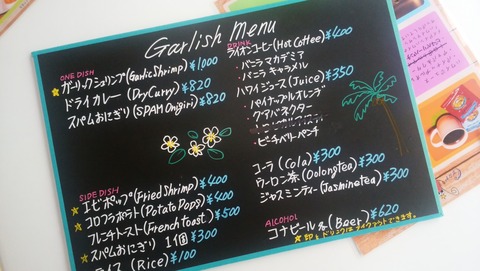 Garlish Menu
ONE DISH
★ガーリックシュリンプ(Garlic Shrimp) ¥1000
ドライカレー (Dry Curry) ¥820
スパムおにぎり (SPAM Onigiri) ¥820
SIDE DISH
★エビポップ (Fried Shrimp) ¥400
★コロコロポテト (Potato Pops) ¥400
フレンチトースト (French toast) ¥500
★スパムおにぎり 1個 ¥300
ライス (Rice) ¥100
DRINK
ライオンコーヒー (Hot Coffee) ¥400
・バニラマカデミア
・バニラキャラメル
ハワイジュース (Juice) ¥350
・パイナップルオレンジ
・グァバネクター
・ピーチベリーパンチ
コーラ (Cola) ¥300
ウーロン茶 (Oolong tea) ¥300
ジャスミンティー (Jasmine tea) ¥300
ALCOHOL
コナビール (Beer) ¥620
★印とドリンクはテイクアウトできます。